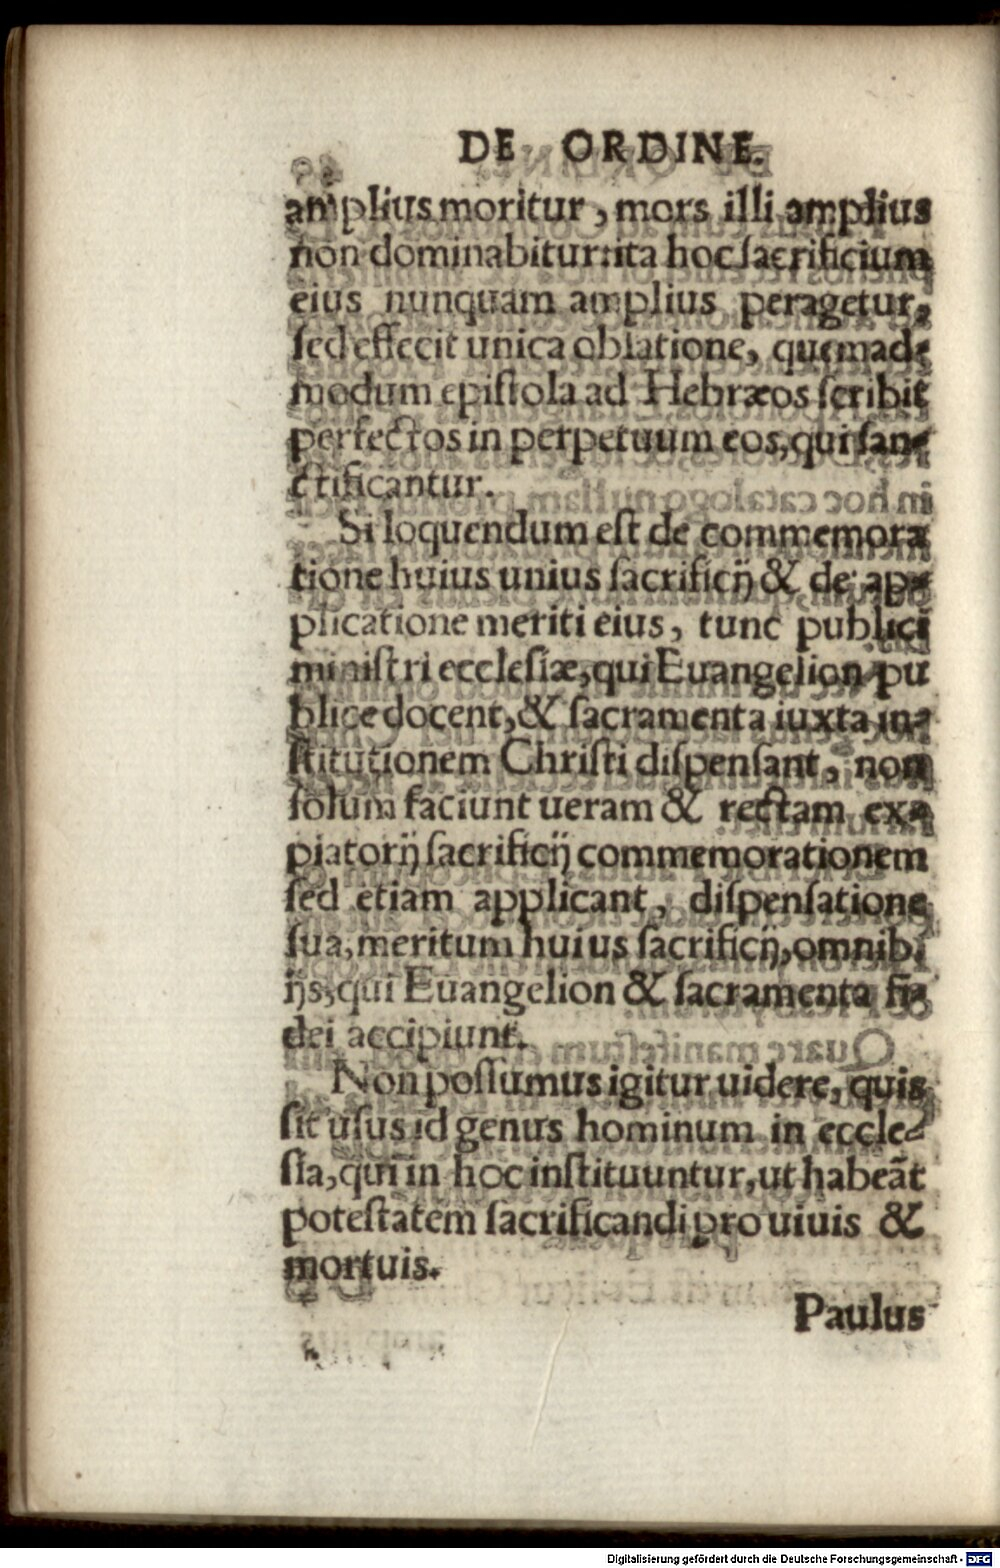 DE ORDINE.
amplius moritur, mors illi amplius
non dominabitur: ita hoc sacrificium
eius nunquam amplius peragetur,
sed effecit unica oblatione, quemad-
modum epistola ad Hebræos scribit
perfectos in perpetuum eos, qui san-
ctificantur.
Si loquendum est de commemora
tione huius unius sacrificij & de ap-
plicatione meriti eius, tunc publici
ministri ecclesiæ, qui Euangelion pu
blice docent, & sacramenta iuxta in-
stitutionem Christi dispensant, non
solum faciunt ueram & rectam ex-
piatorij sacrificij commemorationem
sed etiam applicant, dispensatione
sua, meritum huius sacrificij, omnib.
ijs, qui Euangelion & sacramenta fi-
dei accipiunt.
Non possumus igitur uidere, quis
sit usus id genus hominum in eccle-
sia, qui in hoc instituuntur, ut habeāt
potestatem sacrificandi pro uiuis &
mortuis.
Paulus
Digitalisierung gefördert durch die Deutsche Forschungsgemeinschaft - DFG